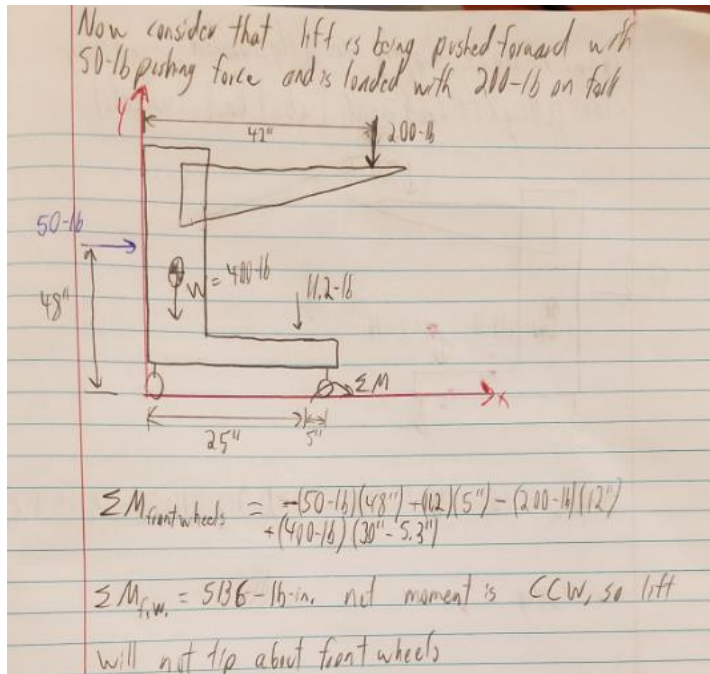 Now consider that lift is being pushed forward with
50-lb pushing force and is loaded with 200-lb on fork
y
42"
200-lb
50-lb
W = 400-lb
11.2-lb
48"
ΣM
x
25"
5"
ΣM front wheels = -(50-lb)(48") +(11.2)(5") - (200-lb)(12")
+(400-lb)(30"-5.3")
ΣM f.w. = 5136-lb-in, net moment is CCW, so lift
will not tip about front wheels